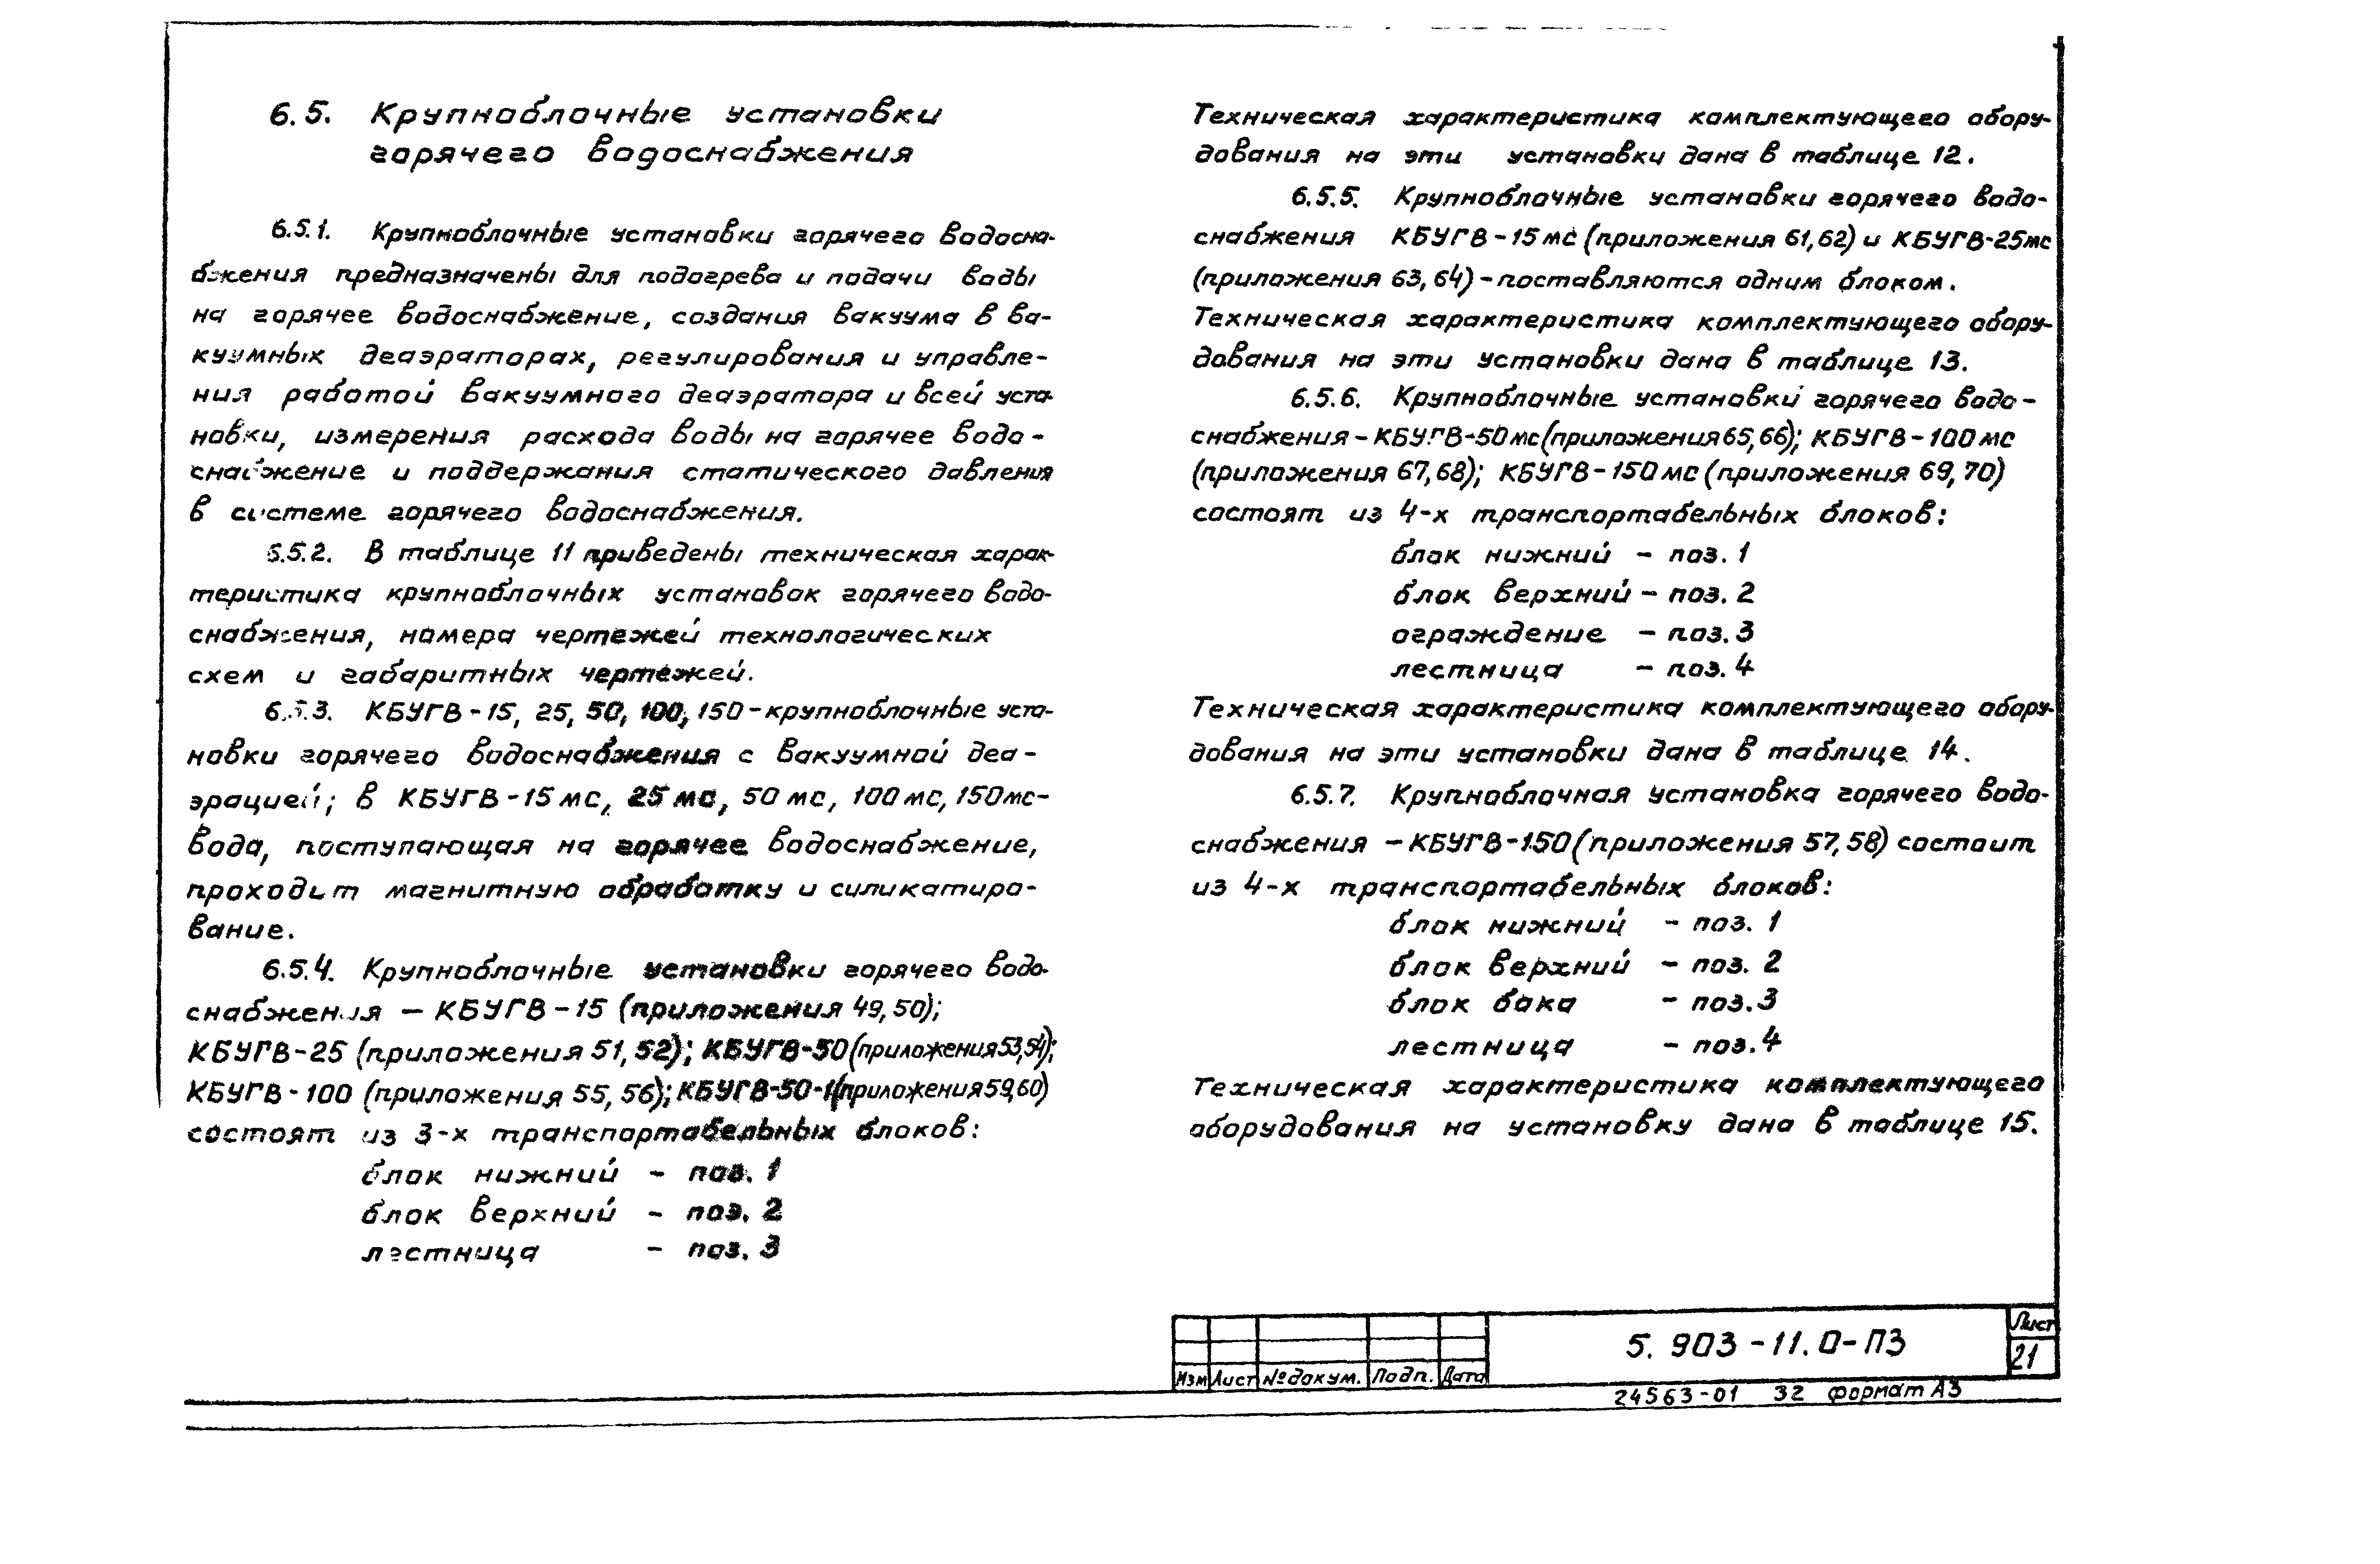 6.5. Крупноблочные установки
горячего водоснабжения
6.5.1. Крупноблочные установки горячего водосна-
бжения предназначены для подогрева и подачи воды
на горячее водоснабжение, создания вакуума в ва-
куумных деаэраторах, регулирования и управле-
ния работой вакуумного деаэратора и всей уста-
новки, измерения расхода воды на горячее водо-
снабжение и поддержания статического давления
в системе горячего водоснабжения.
6.5.2. В таблице 11 приведены техническая харак-
теристика крупноблочных установок горячего водо-
снабжения, номера чертежей технологических
схем и габаритных чертежей.
6.5.3. КБУГВ-15, 25, 50, 100, 150-крупноблочные уста-
новки горячего водоснабжения с вакуумной деа-
эрацией; в КБУГВ-15мс, 25мс, 50мс, 100мс, 150мс-
вода, поступающая на горячее водоснабжение,
проходит магнитную обработку и силикатиро-
вание.
6.5.4. Крупноблочные установки горячего водо-
снабжения - КБУГВ-15 (приложения 49,50);
КБУГВ-25 (приложения 51,52); КБУГВ-50(приложения53,54);
КБУГВ-100 (приложения 55,56); КБУГВ-50-1(приложения59,60)
состоят из 3-х транспортабельных блоков:
блок нижний - поз. 1
блок верхний - поз. 2
лестница - поз. 3
Техническая характеристика комплектующего обору-
дования на эти установки дана в таблице 12.
6.5.5. Крупноблочные установки горячего водо-
снабжения КБУГВ-15мс(приложения 61,62) и КБУГВ-25мс
(приложения 63,64)-поставляются одним блоком.
Техническая характеристика комплектующего обору-
дования на эти установки дана в таблице 13.
6.5.6. Крупноблочные установки горячего водо-
снабжения-КБУГВ-50мс(приложения65,66); КБУГВ-100мс
(приложения 67,68); КБУГВ-150мс(приложения 69,70)
состоят из 4-х транспортабельных блоков:
блок нижний - поз. 1
блок верхний - поз. 2
ограждение - поз. 3
лестница - поз. 4
Техническая характеристика комплектующего обору-
дования на эти установки дана в таблице 14.
6.5.7. Крупноблочная установка горячего водо-
снабжения -КБУГВ-150(приложения 57,58) состоит
из 4-х транспортабельных блоков:
блок нижний - поз. 1
блок верхний - поз. 2
блок бака - поз.3
лестница - поз.4
Техническая характеристика комплектующего
оборудования на установку дана в таблице 15.
Изм Лист №докум. Подп. Дата
5.903-11.0-ПЗ
Лист
21
24563-01 32 формат А3